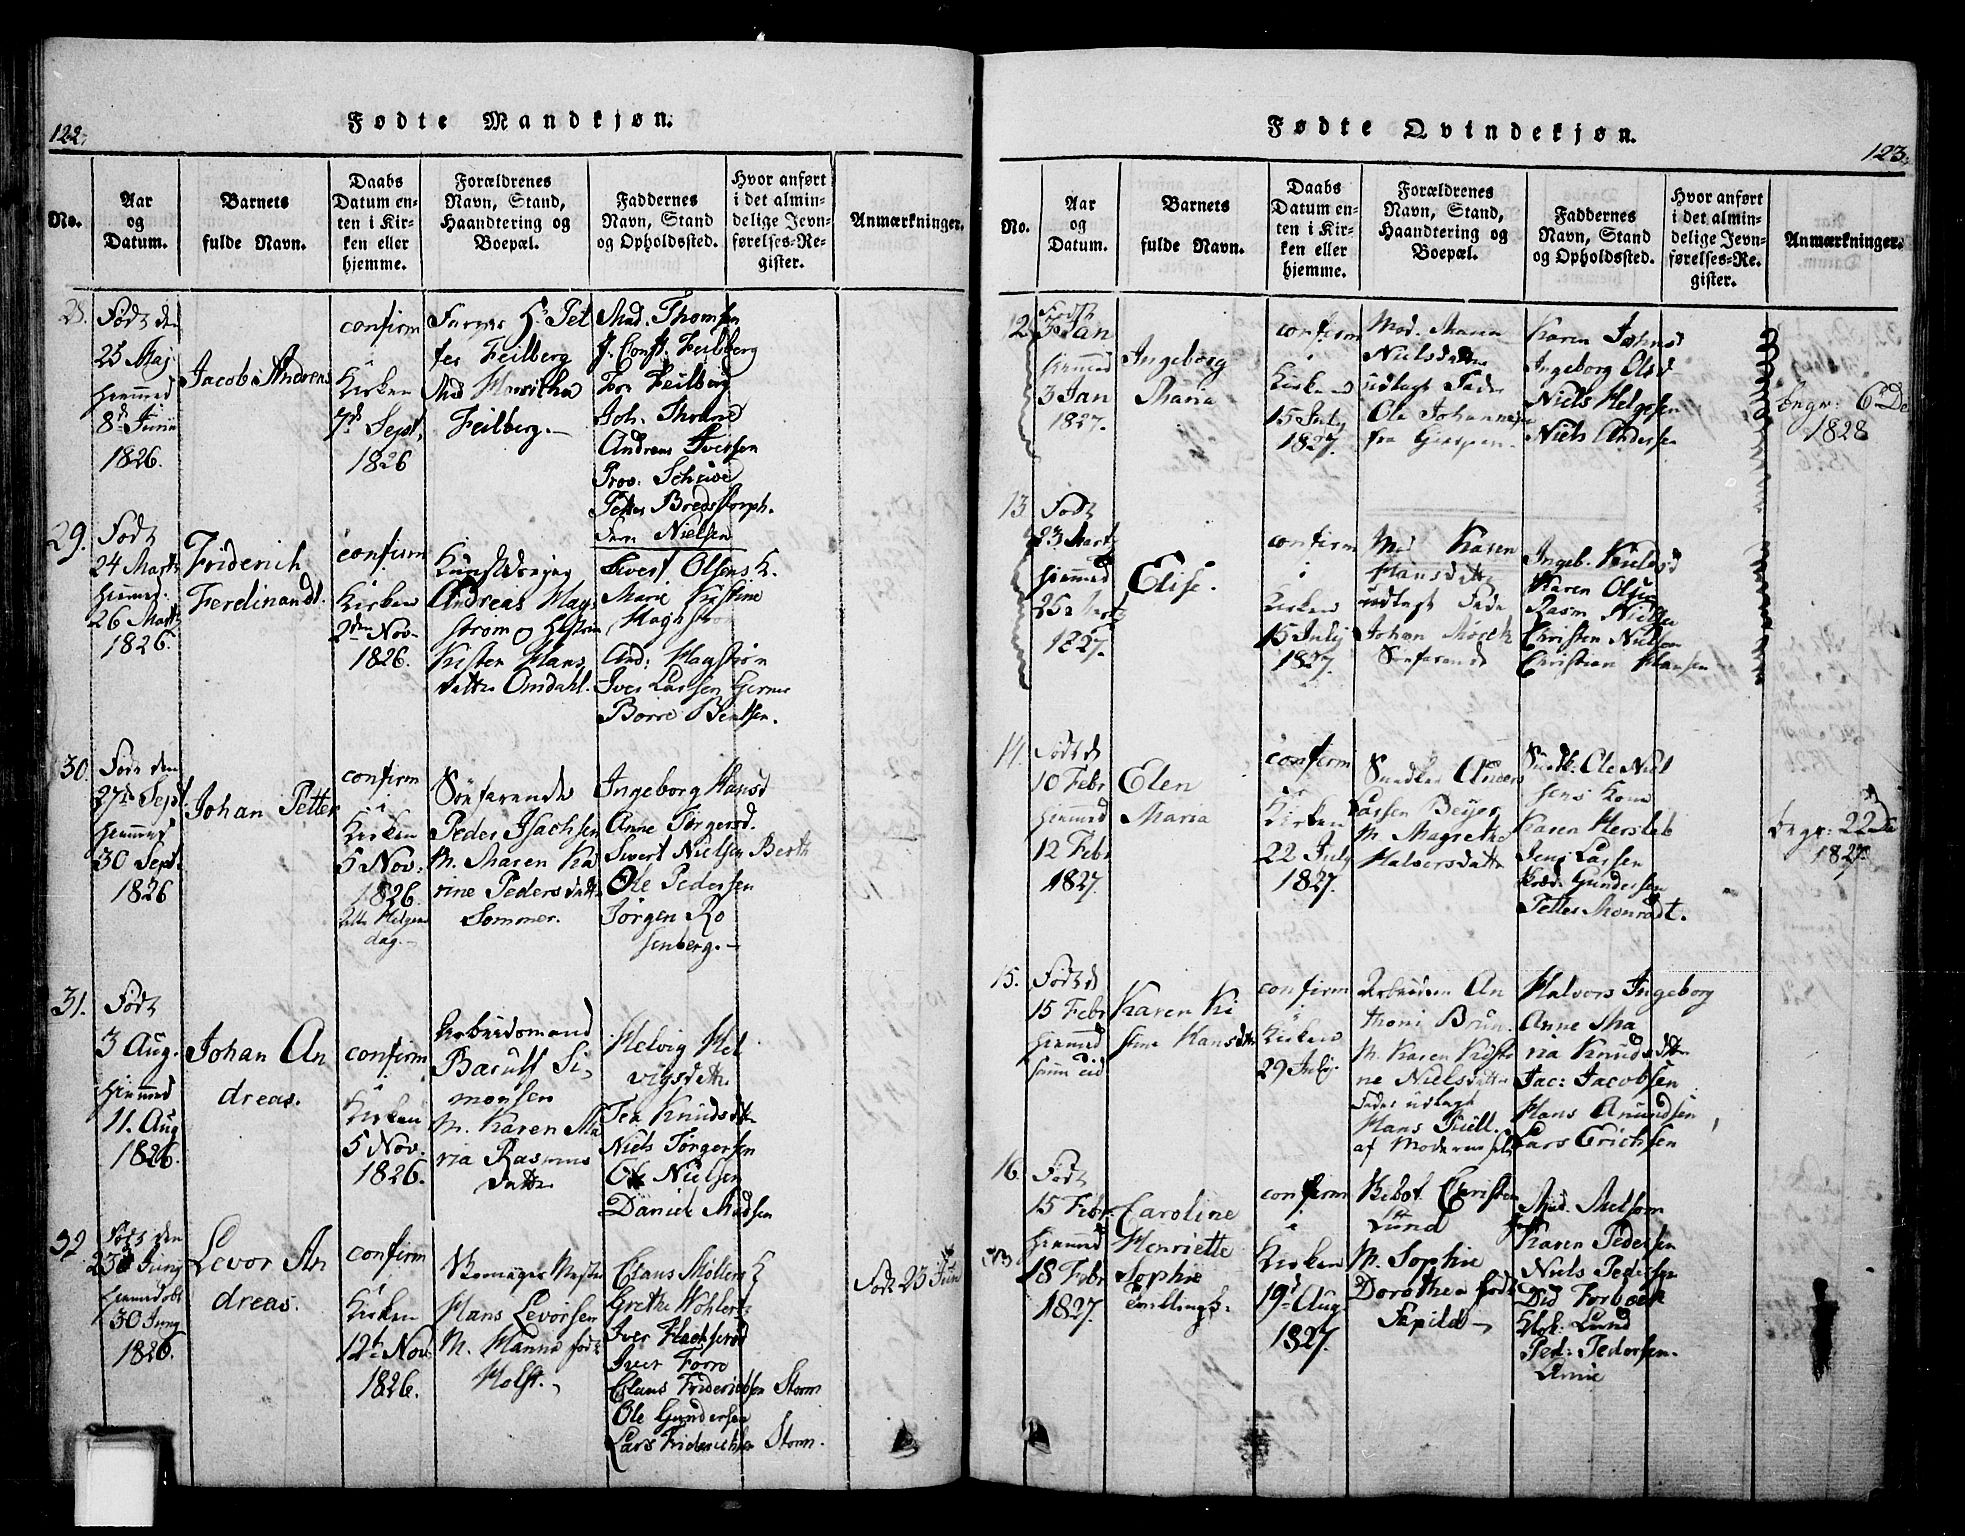 122.
Fødte Mandkjøn.
No.
Aar
og
Datum.
Barnets
fulde Navn.
Daabs
Datum en-
ten i Kir-
ken eller
hjemme.
Forældrenes
Navn, Stand,
Haandtering og
Boepæl.
Faddernes
Navn, Stand
og Opholdssted.
Hvor anført
i det almin-
delige Jevn-
førelses-Re-
gister.
Anmærkninger.
Født den
25 Maj
hiemmed
8d Juni
1826.
Jacob Andreas
confirm
i
Kirken
7d Sept.
1826
Feilberg
Feilberg.
Mad. Thomsen
J. Const. Feilberg
Feilberg
Joh.
Andreas Iversen
Prov:
Petter Bredstorph.
Nielsen
29.
Født
24 Marts
hiemmed.
26 Marts
1826.
Friderich
Ferdinandt.
confirm
i
Kirken
2den Nov.
1826.
Andreas Mag-
strøm og Hustru
Kisten Hans
datter Omdahl.
Sivert Olsens K.
Marie Kistine
Magstrøm
And: Magstrøm
Iver Larsen
Borre Bentsen.
30.
Født den
27de Sept
hiemmed
30 Sept.
1826
Johan Petter
confirm
i
Kirken
5 Nov.
1826.
Alle Helgens
dag.
Søefarende
Peder Isachsen
M. Maren Ka
rine Pedersdatter
Sommer.
Ingeborg Hansd
Anne Jørgensd.
Sivert Nielsen Berth
Ole Pedersen
Jørgen Ro
senberg.
31.
Født
3 Aug.
hiemmed
11. Aug
1826.
Johan An
dreas.
confirm
i
Kirken
5 Nov.
1826.
Arbeidsmand
Si-
monsen
M. Karen Ma
ria Rasmus
datter
Helvig Hel
vigsdatter
Knudsdtr
Niels Jørgensen
Ole Nielsen
Daniel Madsen
32
Født den
23d Juny
30 Juny
1826.
Levor An
dreas.
confirm
i
Kirken
12te Nov.
1826.
Hans Levorsen
M. Hanna fød
Holst.
Claus Møllers K
Grethe Wohlert
Iver
Iver Forre
Claus Friderichsen Storm
Ole Gundersen
Lars Friderichsen Storm.
Født 23 Jun
Fødte Qvindekjøn.
123.
No.
Aar
og
Datum.
Barnets
fulde Navn.
Daabs
Datum en-
ten i Kir-
ken eller
hjemme.
Forældrenes
Navn, Stand,
Haandtering og
Boepæl.
Faddernes
Navn, Stand
og Opholdssted.
Hvor anført
i det almin-
delige Jevn-
førelses-Re-
gister.
Anmærkninger.
12.
Født
3 Jan
hiemmed
3 Jan
1827.
Ingeborg
Maria
confirm
i
Kirken
15 July
1827.
Mod. Maria
Nielsdatter
udlagt Fader
Ole Johannesen
fra Gierpen
Karen Johnsd
Ingeborg Olsd
Niels Helgesen
Niels Andersen
begr: 6 De
1828
13
Født
23 Marts
hiemmed
25 Marts
1827.
Elise.
confirm
i
Kirken
15 July
1827.
Mod Karen
Hansdatter
udlagt Fader
Johan
Søefarende
Ingeb.
Karen Olsd
Rasm Nielsen
Christen Nielsen
Christian Hansen
14.
Født d
10 Febr
hiemmed
12 Febr
1827.
Elen
Maria
confirm
i
Kirken
22 July
1827.
Anders
Larsen Beyer
M. Magrethe
Halvorsdatter
Ole Niel
sens Kone
Karen Hersleb
Jens Larsen
Gundersen
Petter Monrødt.
begr: 22de
1827
15.
Født d
15 Febr
hiemmed
samme tid
Karen Ki
stine Hansdtr
confirm
i
Kirken
29 July.
Arbeidsm An
thoni Brun
M. Karen Kisti
ne Nielsdatter
Fader udlagt
Hans
af Moderen selv
Halvors Ingeborg
Anne Ma
ria Knudsdtr
Jac: Jacobsen
Hans Amundsen
Lars Erichsen
16.
Født
15 Febr.
hiemmed
18 Febr
1827.
Caroline
Henriette
Sophie
confirm
i
Kirken
19d Aug
1827.
Christen
Lund
M. Sophie
Dorothea fød
Mad. Melsom
Karen Pedersen
Niels Pedersen
Did Forboek
Klok: Lund
Ped: Pedersen.